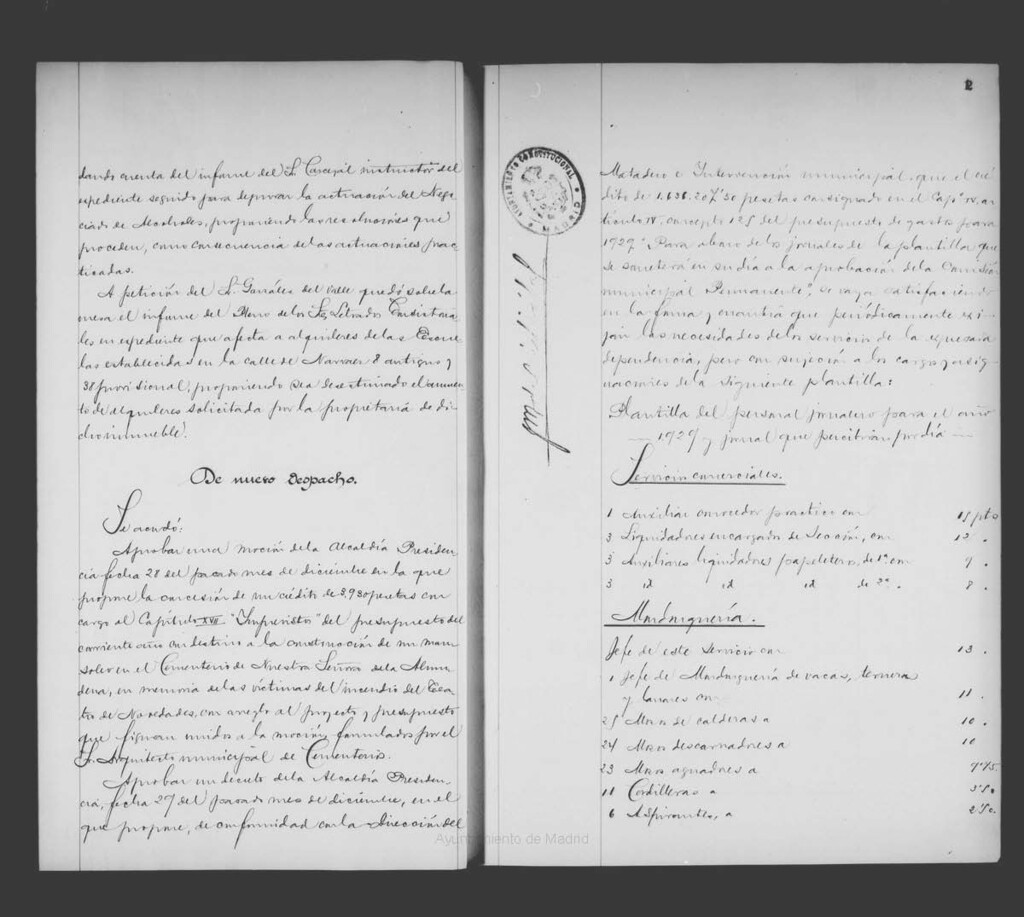 dando cuenta del informe del Sr. Concejal instructor del
expediente seguido para depurar la actuación del Nego
ciado de Alcoholes, proponiendo las resoluciones que
proceden, como consecuencia de las actuaciones prac
ticadas.
A petición del Sr. González del Valle quedó sobre la
mesa el informe del Pleno de los Sres Letrados Consistoria
les en expediente que afecta a alquileres de las Escue
las establecidas en la calle de Narvaez 8 antiguo y
38 provisional, proponiendo sea desestimado el aumen
to de alquileres solicitada por la propietaria de di
cho inmueble.
De nuevo despacho.
Se acordó:
Aprobar una moción de la Alcaldía Presiden
cia fecha 28 del pasado mes de diciembre en la que
propone la concesión de un crédito de 3,930 pesetas con
cargo al Capítulo XVII "Imprevistos" del presupuesto del
corriente año con destino a la construcción de un mau
soleo en el Cementerio de Nuestra Señora de la Almu
dena, en memoria de las víctimas del incendio del Tea
tro de Novedades, con arreglo al proyecto y presupuesto
que figuran unidos a la moción, formulados por el
Sr. Arquitecto municipal de Cementerios.
Aprobar un decreto de la Alcaldía Presiden
cia, fecha 27 del pasado mes de diciembre, en el
que propone, de conformidad con la Dirección del
2
AYUNTAMIENTO CONSTITUCIONAL
MADRID
Matadero e Intervención municipal, que el cré
dito de 1.636.207'50 pesetas consignado en el Capº IV, ar
tículo IV, concepto 125 del presupuesto de gastos para
1929 "Para abono de los jornales de la plantilla que
se someterá en su día a la aprobación de la Comisión
municipal Permanente", se vaya satisfaciendo
en la forma y cuantía que periódicamente exi
jan las necesidades de los servicios de la expresada
dependencia, pero con sujeción a los cargos y asig
naciones de la siguiente plantilla:
Plantilla del personal jornalero para el año
1929 y jornal que percibirán por día
Servicios comerciales.
1 Auxiliar conocedor practico con 15 pts
3 Liquidadores encargados de Sección, con 12 .
3 Auxiliares liquidadores papeleteros, de 1ª con 9 .
3 id id id de 2ª . 8 .
Mondonguería.
Jefe de este servicio con 13 .
1 Jefe de Mondonguería de vacas, terneras
y lanares con 11 .
25 Mozos de calderas a 10 .
24 Mozos descarnadores a 10
23 Mozos aguadores a 9'75
11 Cordilleras a 3'50
6 Aspirantes, a 2'50.
Ayuntamiento de Madrid